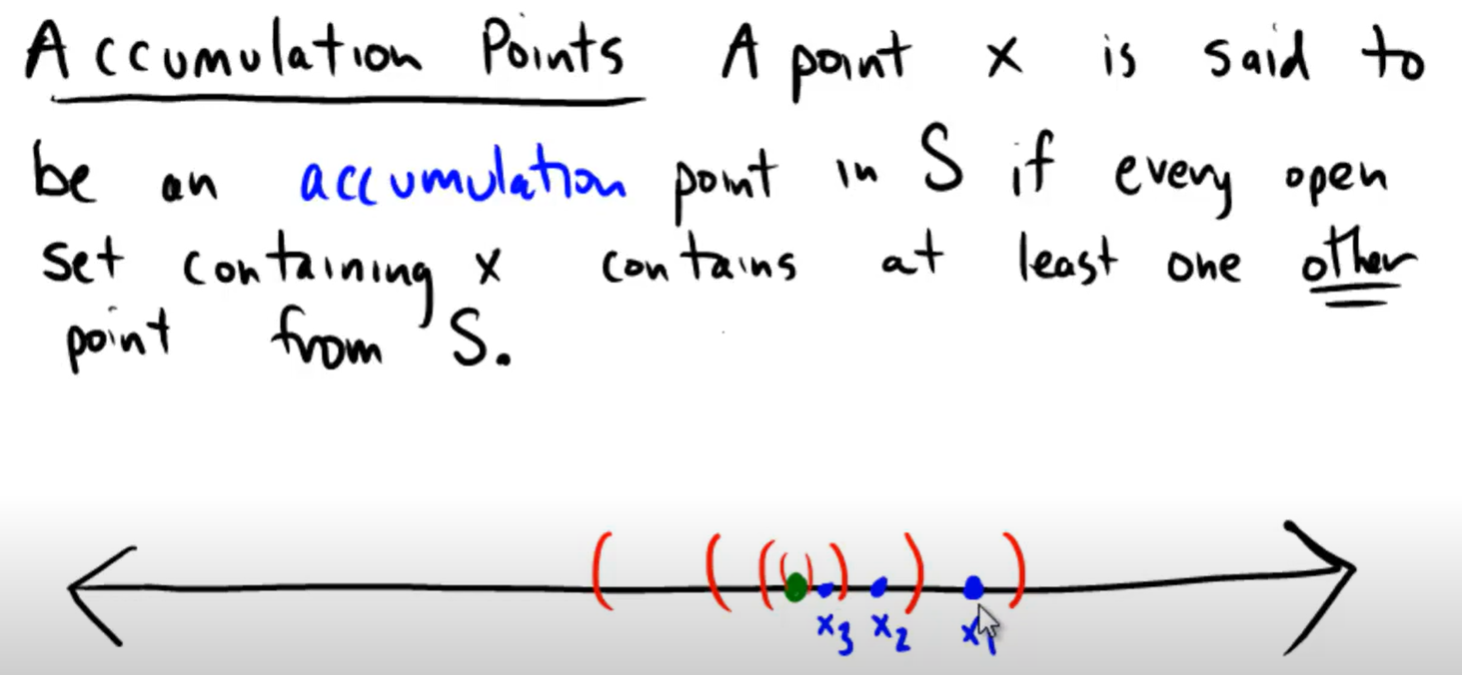 Accumulation Points A point x is said to
be an accumulation point in S if every open
set containing x contains at least one other
point from S.
( ( ( ( ) ) ) )
x3 x2 x1